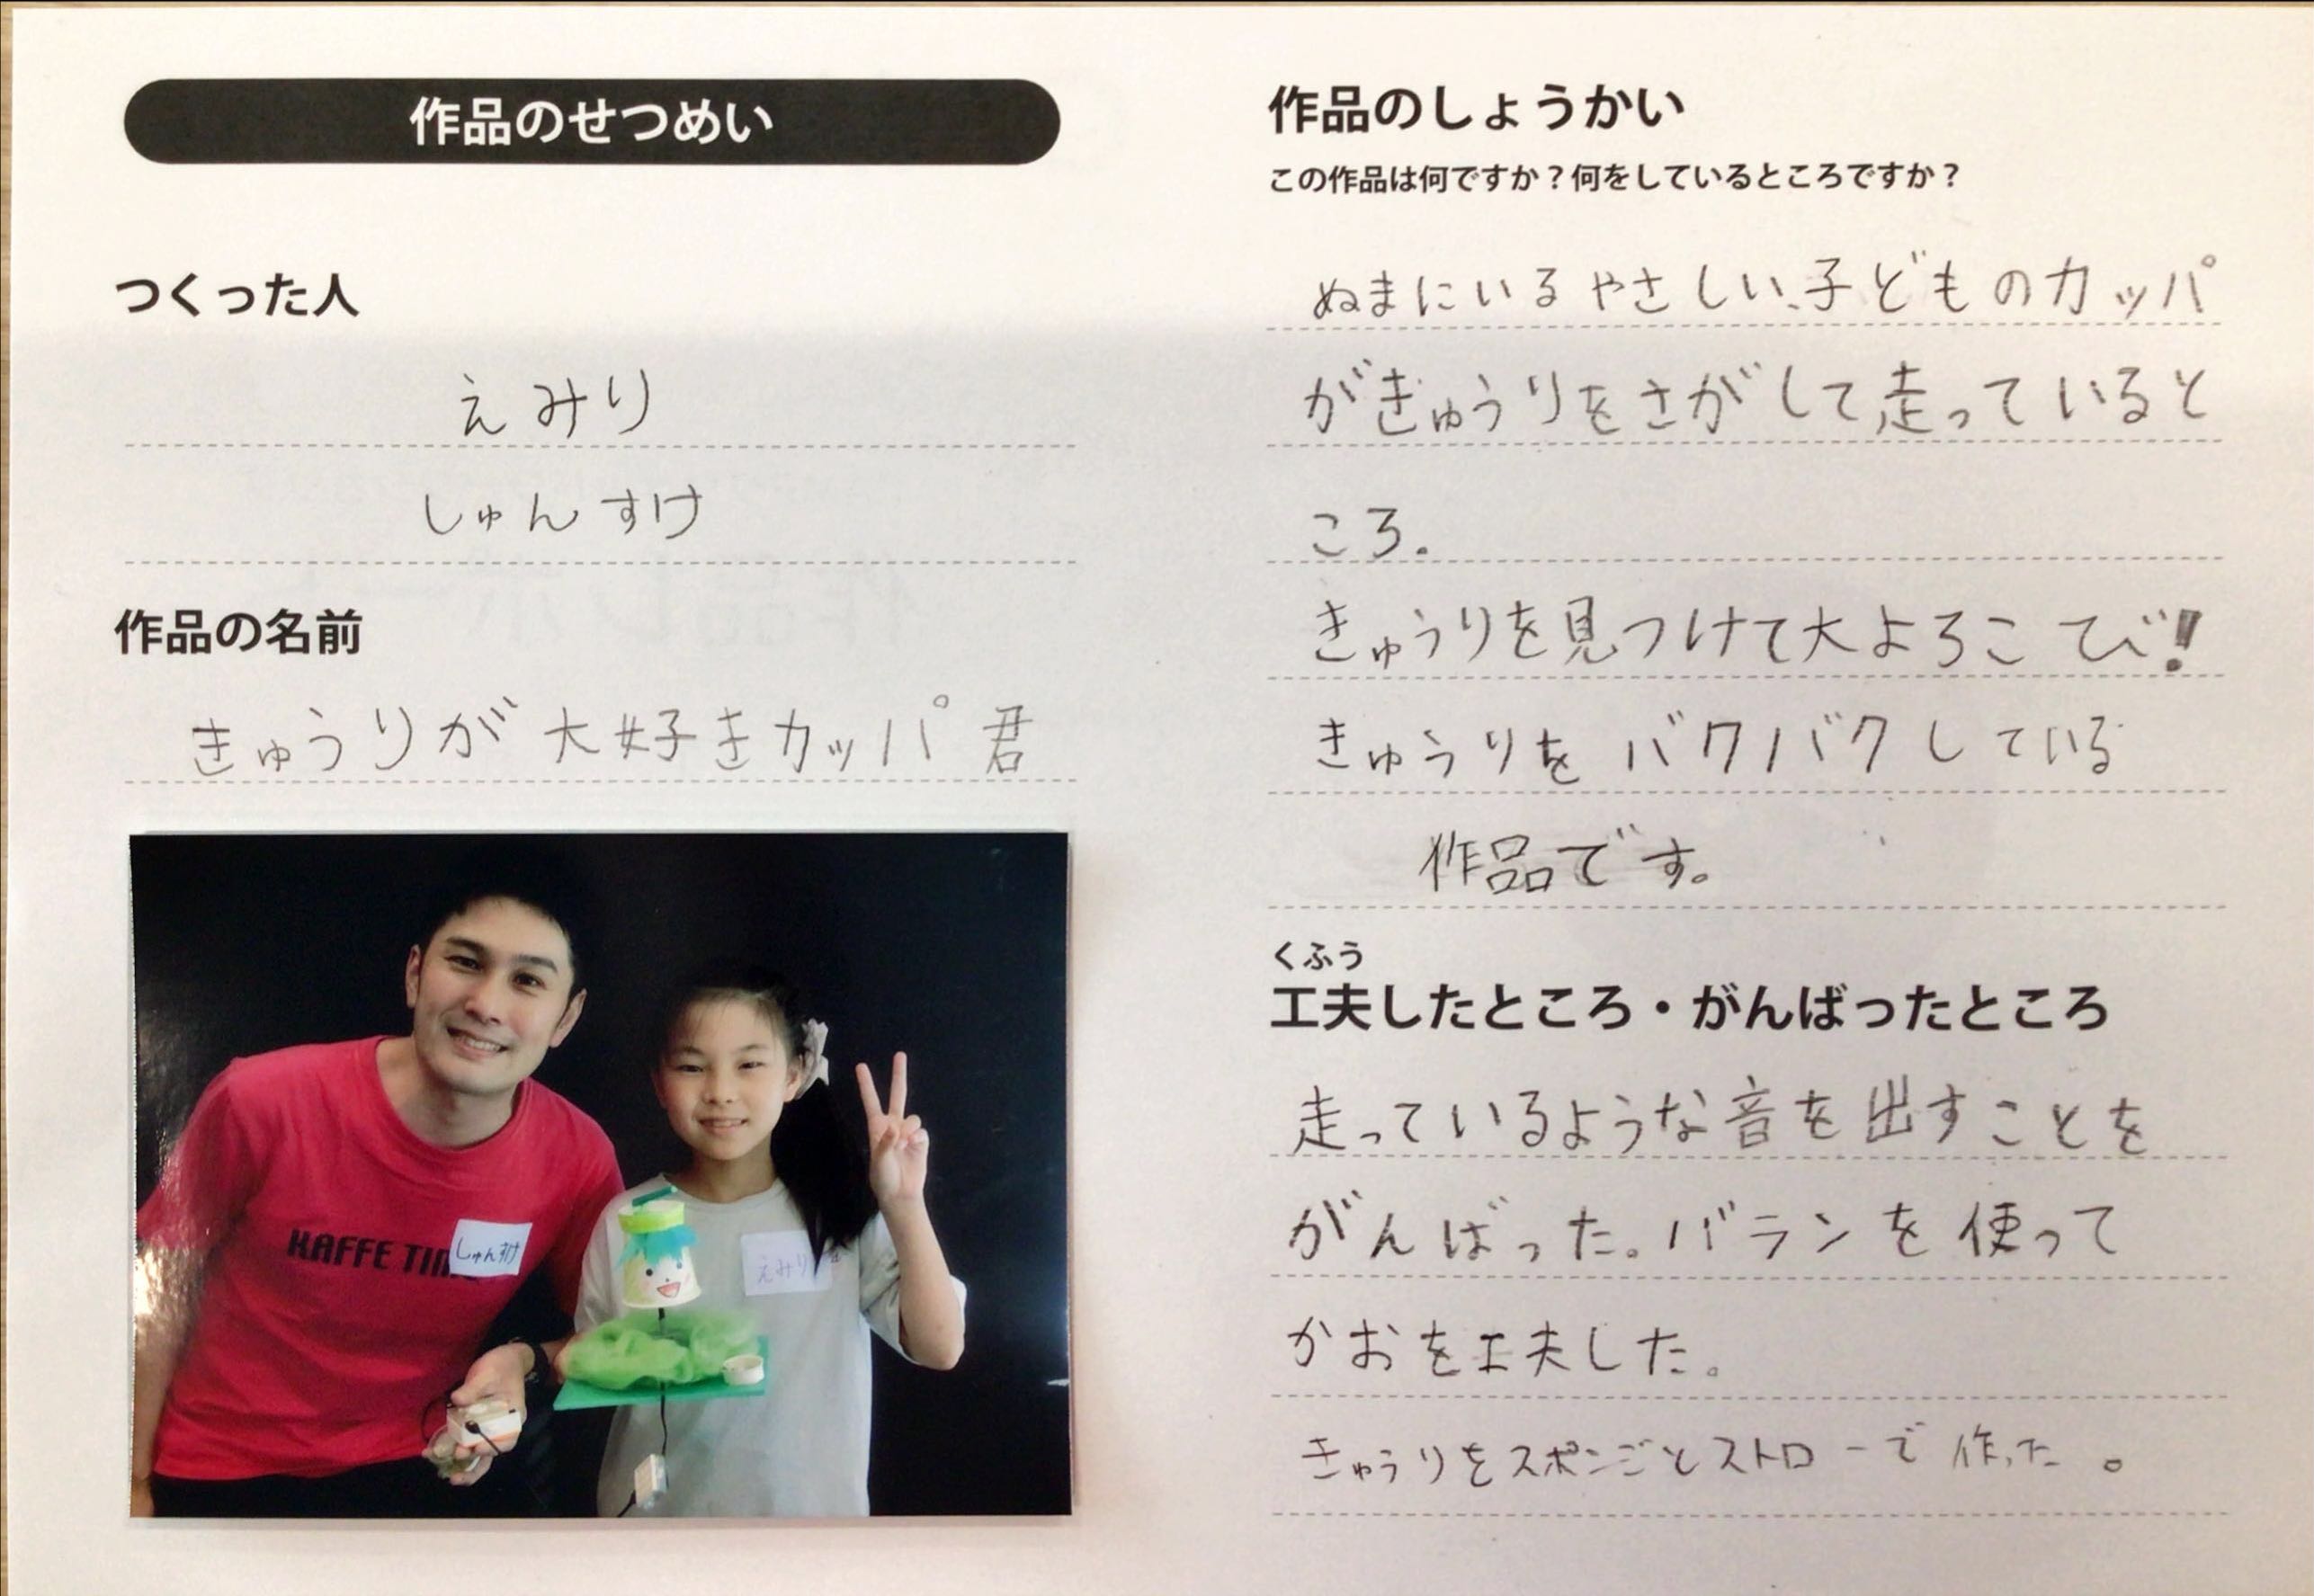 作品のせつめい
つくった人
えみり
しゅんすけ
作品の名前
きゅうりが大好きカッパ君
KAFFE TIM
しゅんすけ
えみり
作品のしょうかい
この作品は何ですか？何をしているところですか？
ぬまにいるやさしい、子どものカッパ
がきゅうりをさがして走っていると
ころ。
きゅうりを見つけて大よろこび!
きゅうりをバクバクしている
作品です。
くふう
工夫したところ・がんばったところ
走っているような音を出すことを
がんばった。バランを使って
かおを工夫した。
きゅうりをスポンジとストローで作った。